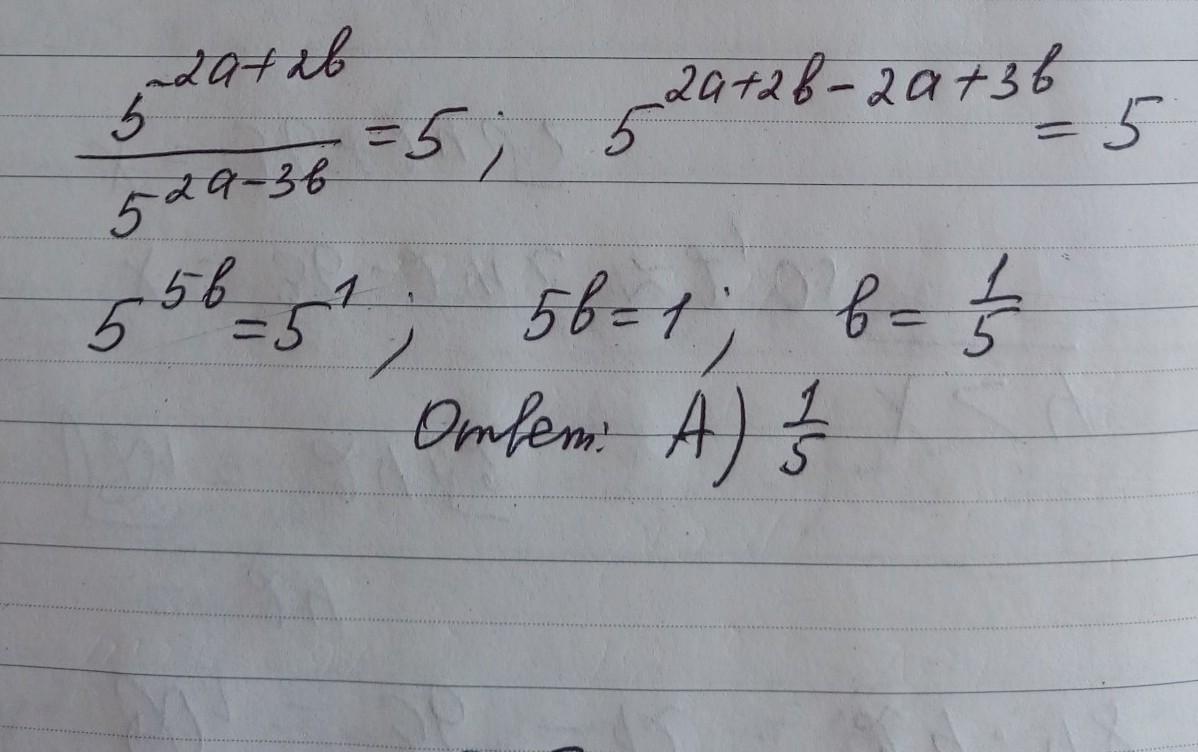 5^{2a+2b} / 5^{2a-3b} = 5; 5^{2a+2b-2a+3b} = 5
5^{5b} = 5^1; 5b = 1; b = 1/5
Ответ: А) 1/5